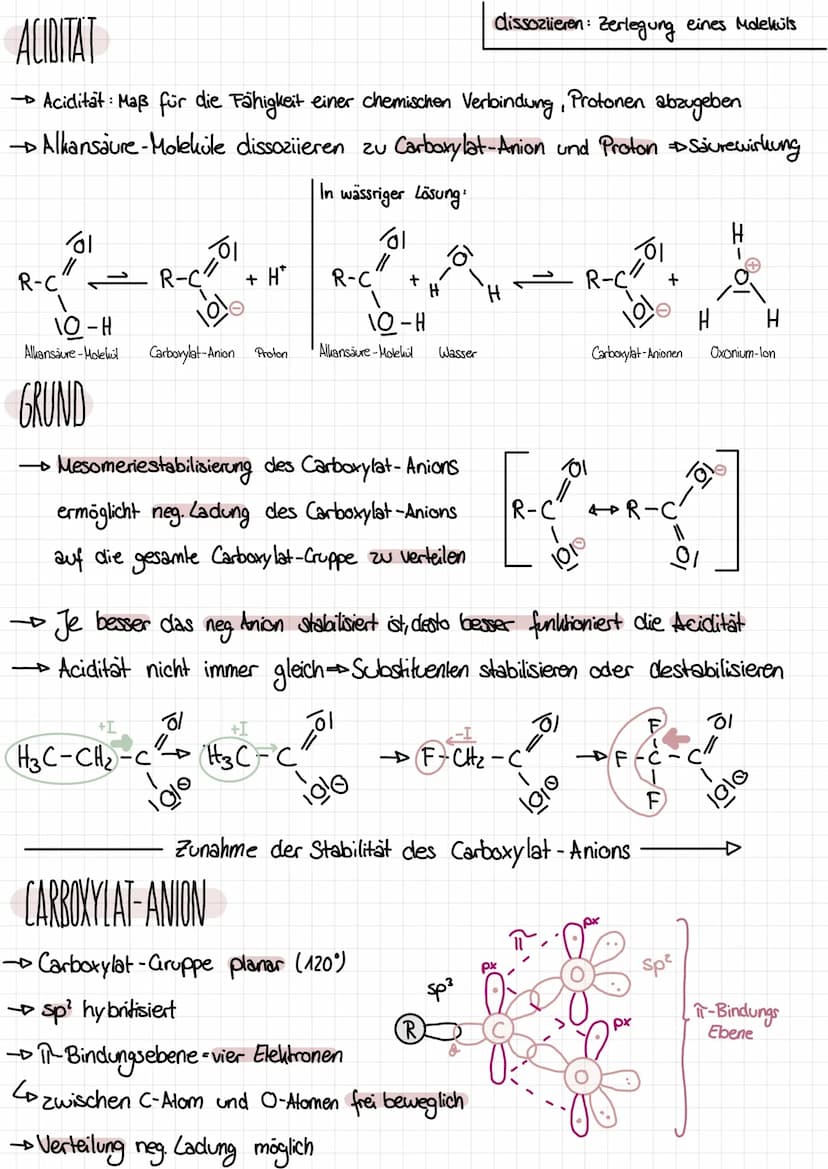 ACIDITÄT
dissoziieren: Zerlegung eines Moleküls
→ Acidität: Maß für die Fähigkeit einer chemischen Verbindung, Protonen abzugeben
→ Alkansäure-Moleküle dissoziieren zu Carboxylat-Anion und Proton ⇒ Säurewirkung
In wässriger Lösung:
R-C O O-H ⇌ R-C O O⊖ + H⁺
R-C O O-H + H O H ⇌ R-C O O⊖ + H O⊕ H H
Alkansäure-Molekül Carboxylat-Anion Proton Alkansäure-Molekül Wasser Carboxylat-Anionen Oxonium-Ion
GRUND
→ Mesomeriestabilisierung des Carboxylat-Anions
ermöglicht neg. Ladung des Carboxylat-Anions
auf die gesamte Carboxylat-Gruppe zu verteilen
R-C O O⊖ ↔ R-C O⊖ O
→ Je besser das neg Anion stabilisiert ist, desto besser funktioniert die Acidität
→ Acidität nicht immer gleich ⇒ Substituenten stabilisieren oder destabilisieren
+I +I -I
H₃C-CH₂-C O O⊖ → H₃C-C O O⊖ → F-CH₂-C O O⊖ → F-C F F -C O O⊖
Zunahme der Stabilität des Carboxylat-Anions
CARBOXYLAT-ANION
→ Carboxylat-Gruppe planar (120°)
→ sp² hybridisiert
→ π-Bindungsebene = vier Elektronen
↳ zwischen C-Atom und O-Atomen frei beweglich
→ Verteilung neg. Ladung möglich
π px
px sp²
O
sp³
R C
px
O
π-Bindungs
Ebene